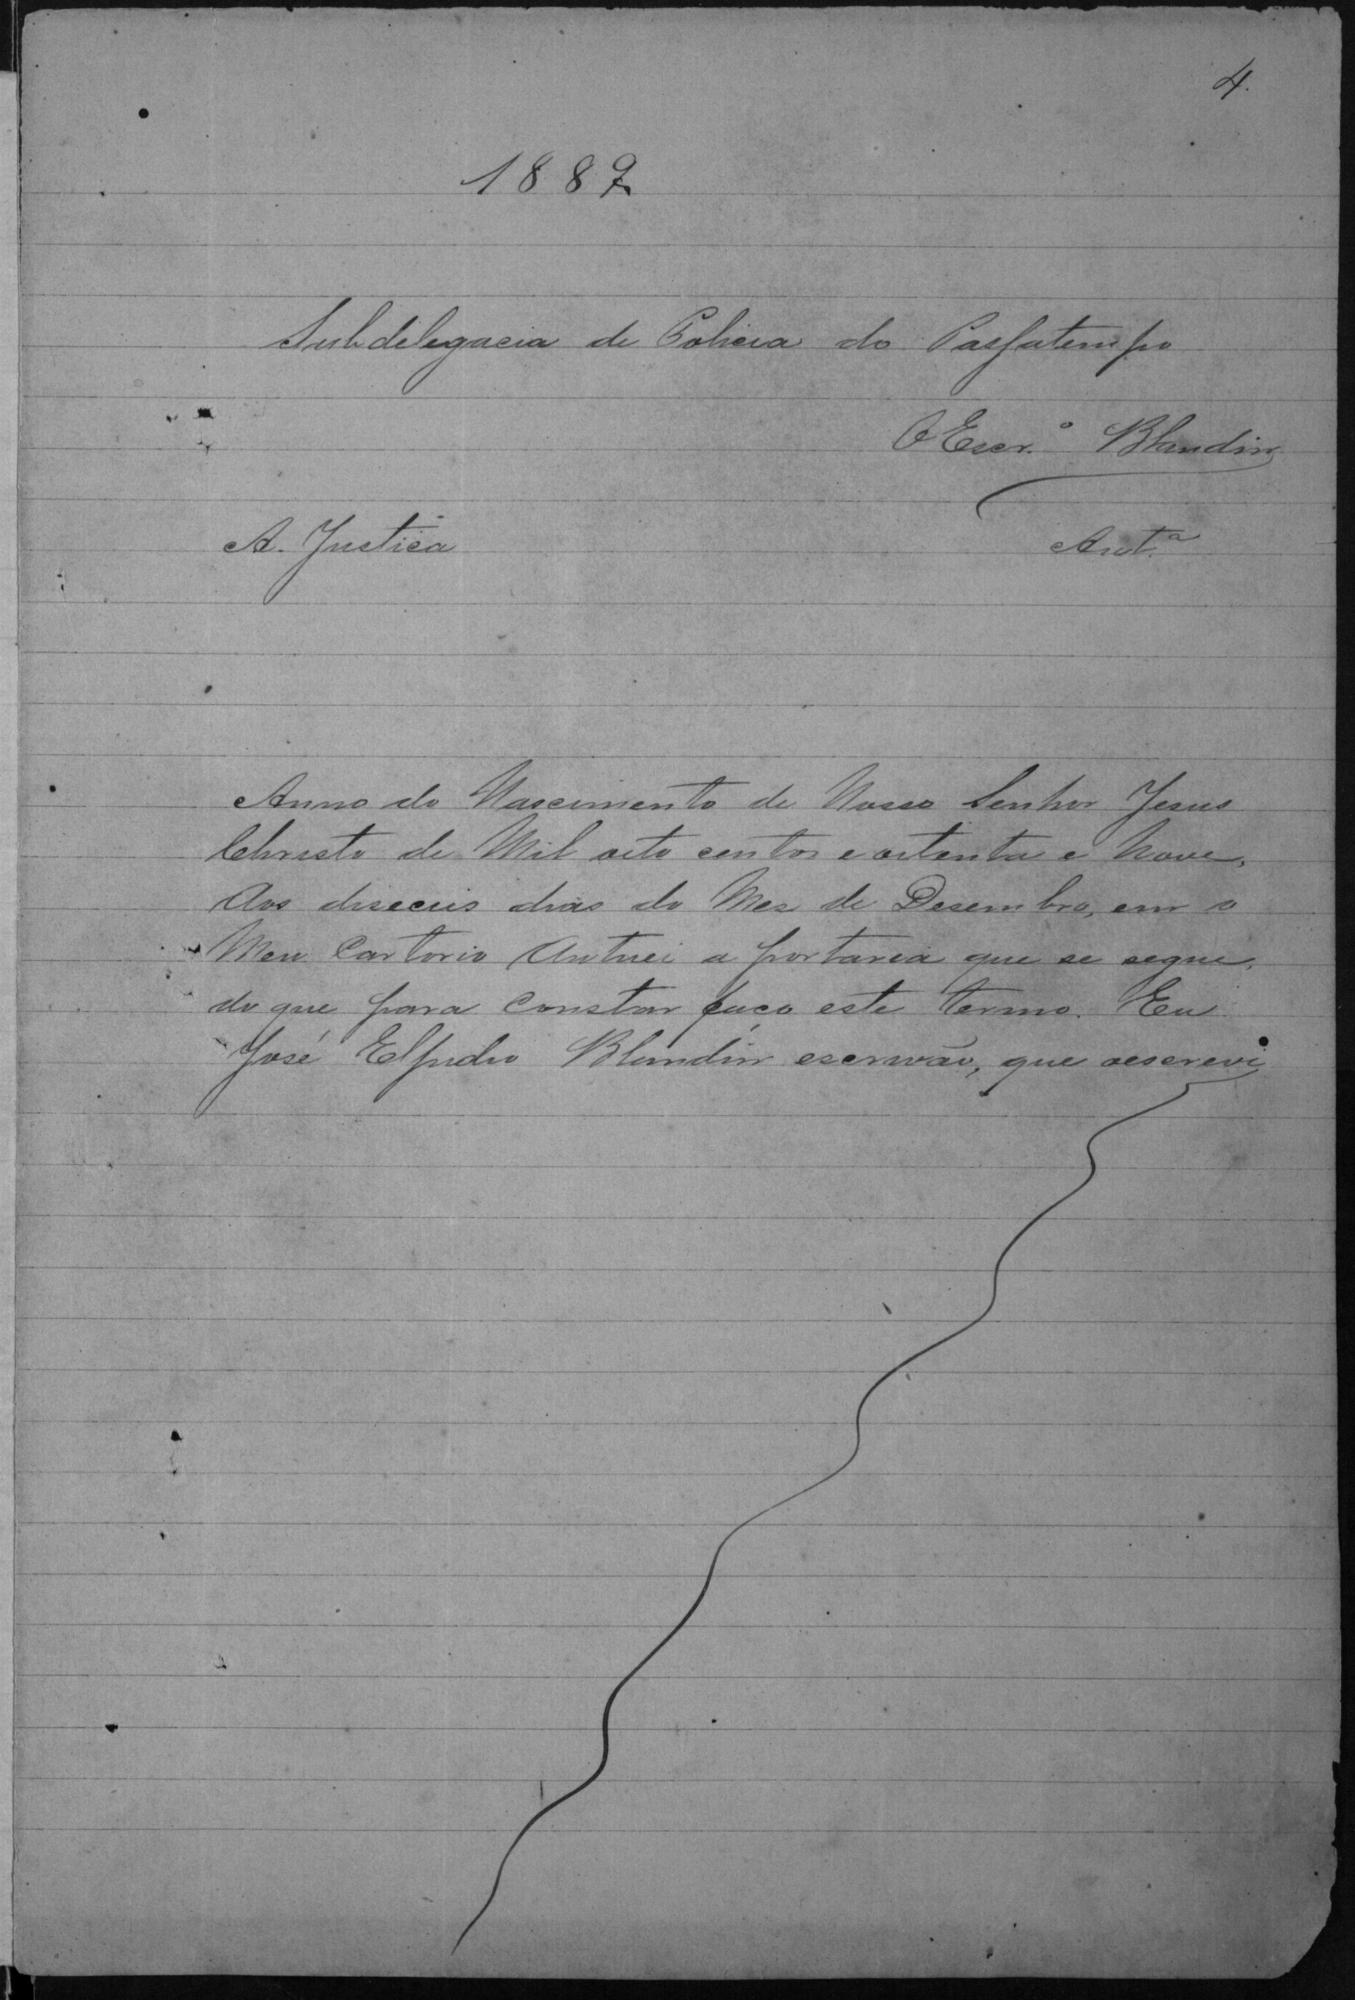 4.
1889
Subdelegacia de Policia do Passatempo
O Escr.º Blandin
A. Justiça
Aut.ª
Anno do Nascimento de Nosso Senhor Jesus
Christo de Mil oito centos e oitenta e Nove,
Aos diseceis dias do Mez de Desembro, em o
Meu Cartorio Autuei a portaria que se segue,
do que para Constar faço este termo. Eu
José Elpidio Blandin escrivão, que oescrevi